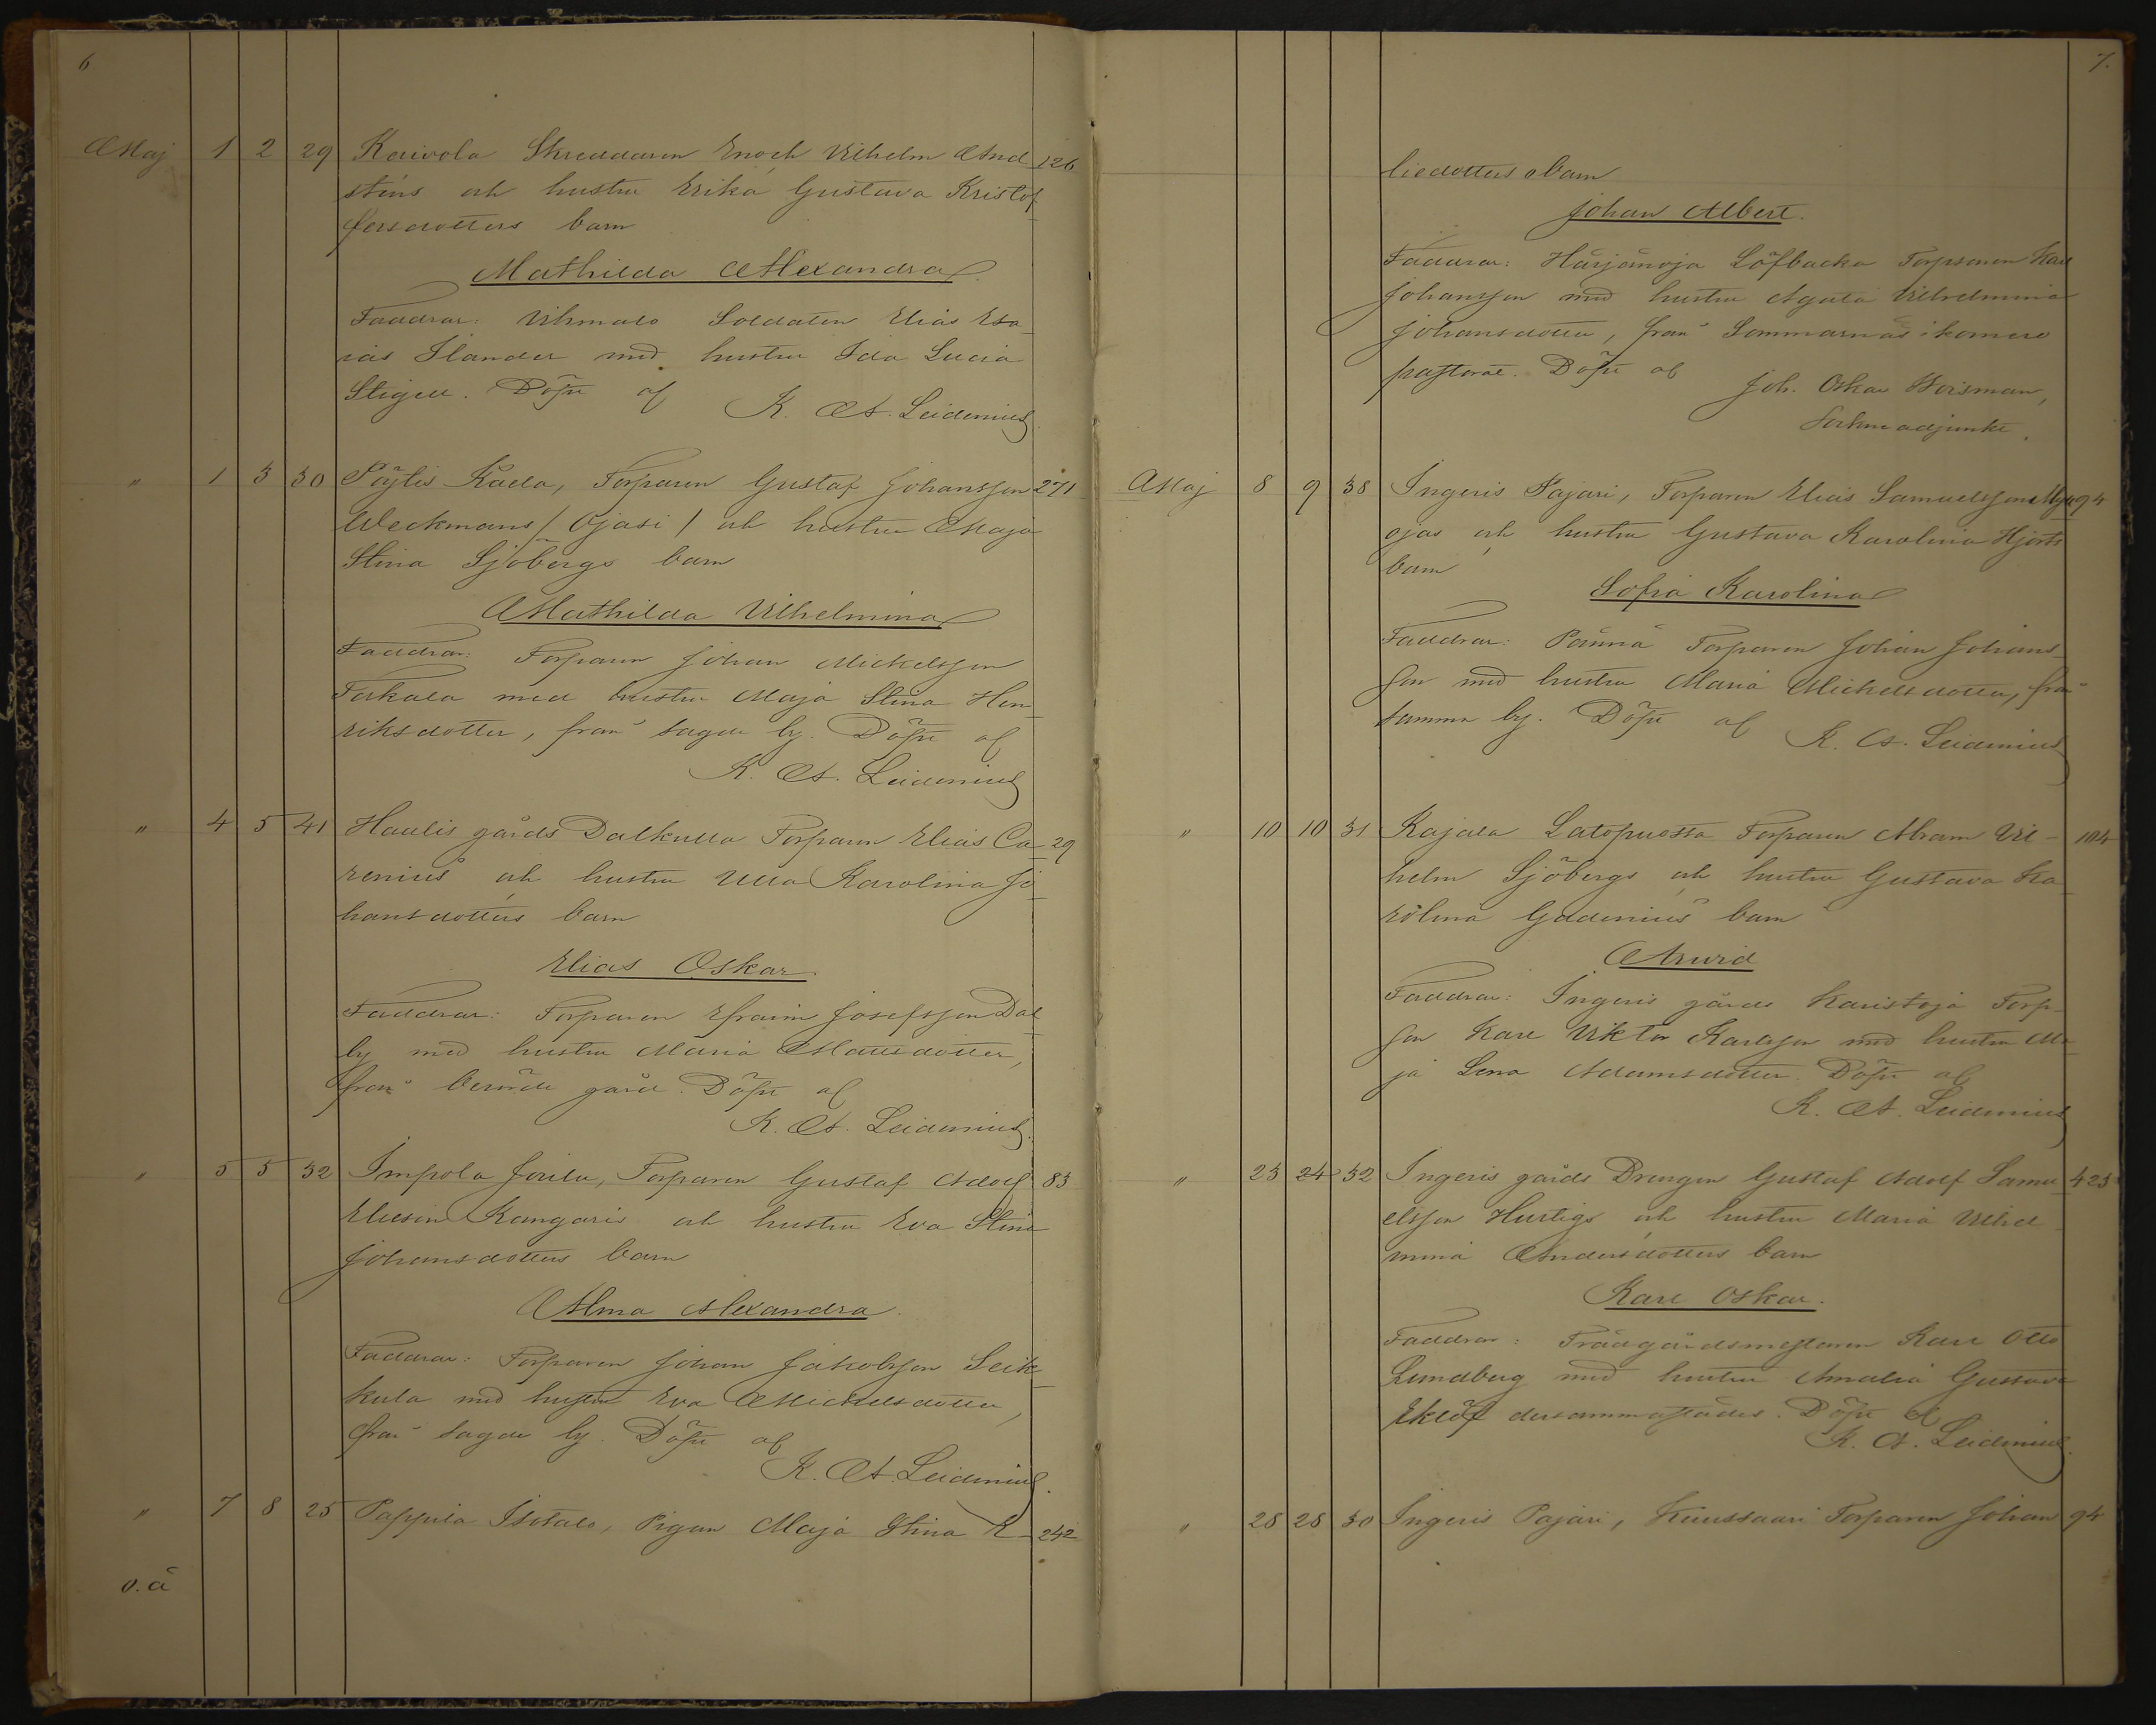 6
Maj 1 2 29 Kaivola Skreddaren Enoch Vilhelm And 126
sténs och hustru Erika Gustava Kristof
fersdotters barn
Mathilda Alexandra
Faddrar: Vihmalo Soldaten Elias Esa
ias Ilander med hustru Ida Lucia
Stigell. Döpt af
K. A. Leidenius
" 1 3 30 Pöytis Kaela, Torparen Gustaf Johansson 271
Weckmans / Ojasi / och hustru Maja
Stina Sjöbergs barn
Mathilda Vilhelmina
Faddrar: Torparen Johan Mickelsson
Torkala med hustru Maja Stina Hen
riksdotter, från sagde by. Döpt af
K. A. Leidenius
" 4 5 41 Haulis gårds Dalkulla Torparen Elias Ca 29
renius och hustru Ulla Karolina Jo
hansdotters barn
Elias Oskar
Faddrar: Torparen Efraim Josefsson Dal
by med hustru Maria Mattsdotter,
från berörde gård. Döpt af
K. A. Leidenius.
" 5 5 32 Impola Jouila, Torparen Gustaf Adolf 83
Eliesen Kangaris och hustru Eva Stina
Johansdotters barn
Alma Alexandra
Faddrar: Torparen Johan Jakobsson Seik
kula med hustru Eva Mickelsdotter,
från sagde by. Döpt af
K. A. Leidenius.
" 7 8 25 Pappila Isotalo, Pigan Maja Stina E 242
v. ä
7.
liedotters o barn
Johan Albert.
Faddrar: Härjänoja Löfbacka Torpsonen Karl
Johansson med hustru Agata Vilhelmina
Johansdotter, från Sommarnäs i komero
pastorat. Döpt af
Joh. Oskar Woisman,
Sockneadjunkt.
Maj 8 9 38 Ingeris Pajari, Torparen Elias Samuelsson Myll 94
ojas och hustru Gustava Karolina Hjorts
barn
Sofia Karolina
Faddrar: Pännä Torparen Johan Johans
son med hustru Maria Mickelsdotter, från
samma by. Döpt af
K. A. Leidenius
" 10 10 31 Kajala Latopuosta Torparen Abram Vil- 104
helm Sjöbergs och hustru Gustava Ka
rolina Gadenius barn
Arvid
Faddrar: Ingeris gårds Karistoja Torp-
son Karl Viktor Karlsson med hustru Ma
ja Lena Adamsdotter. Döpt af
K. A. Leidenius
" 23 24 32 Ingeris gårds Drengen Gustaf Adolf Samu 423
elsson Hurtigs och hustru Maria Vilhel
mina Andersdotters barn
Karl Oskar.
Faddrar: Trädgårdsmästaren Karl Otto
Lundberg med hustru Amalia Gustava
Eklöf dersammastädes. Döpt af
K. A. Leidenius.
" 28 28 30 Ingeris Pajari, Kuussaari Torparen Johan 94